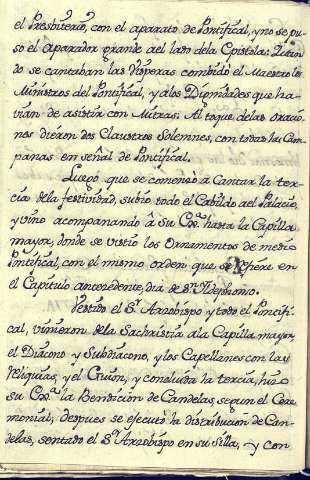 el Presbiterio, con el aparato de Pontifical, y no se pu-
so el Aparador grande del lado dela Epistola: Quan-
do se cantaban las Visperas combidò el Maestro los
Ministros del Pontifical, y alos Dignidades que ha-
vian de asistir con Mitras: Al toque delas oracio-
nes dieron dos Claustros Solemnes, con todas las Cam-
panas en señal de Pontifical.
Luego que se comenzò a Cantar la ter-
cia dela festividad, subio todo el Cabildo ael Palacio,
y vino acompanando â Su Exª. hasta la Capilla
mayor, donde se vistio los Ornamentos de medio
Pontifical, con el mismo orden que se refiere en
el Capitulo antecedente, dia de Sn. Ildephonso.
Vestido el Sr. Arzobispo y todo el Pontifi-
cal, vinieron dela Sachristia ala Capilla mayor,
el Diacono y Subdiacono, y los Capellanes con las
Reliquias, y el Guion, y concluida la tercia, hizo
su Exª. la Bendicion de Candelas, segun el Cere-
monial; despues se executò la distribucion de Can-
delas, sentado el Sr. Arzobispo en su Silla, y con